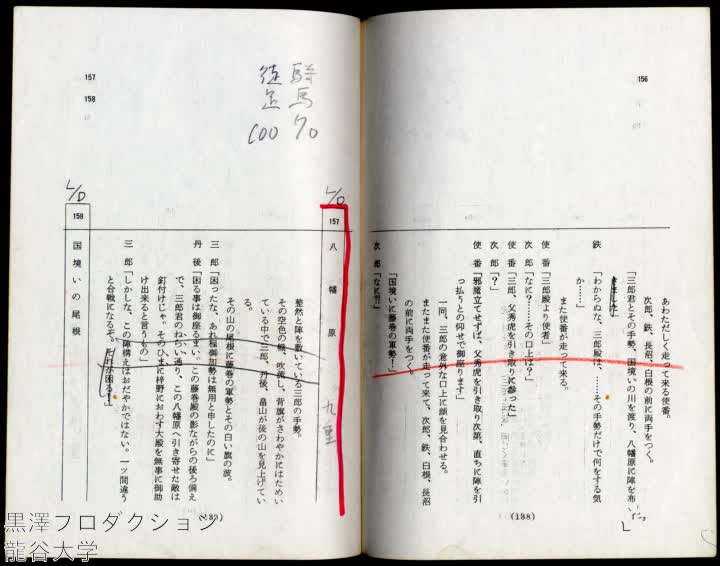 156
あわただしく走って来る使番。
次郎、鉄、長沼、白根の前に両手をつく。
「三郎君とその手勢、国境いの川を渡り、八幡原に陣を布い
きました」
鉄「わからぬな、三郎殿は、……その手勢だけで何をする気
か……」
また使番が走って来る。
使番「三郎殿より使者」
次郎「なに?……その口上は?」
使番「三郎、父秀虎を引き取りに参った」
次郎「?」
使番「邪魔立てせずば、父秀虎を引き取り次第、直ちに陣を引
っ払うとの仰せで御座ります」
一同、三郎の意外な口上に顔を見合わせる。
またまた使番が走って来て、次郎、鉄、白根、長沼
の前に両手をつく。
「国境いに藤巻の軍勢!」
次郎「なに⁈」
(138)
157
158
騎馬70
徒歩100
L/O
157
八幡原
九重
整然と陣を敷いている三郎の手勢。
その空色の幟、吹流し、背旗がさわやかにはためい
ている中で三郎、丹後、畠山が後の山を見上げてい
る。
その山の尾根に藤巻の軍勢とその白い旗の波。
三郎「困ったな、あれ程御加勢は無用と申したのに」
丹後「困る事は御座るまい。この藤巻殿の影ながらの後ろ備え
で、三郎君のねらい通り、この八幡原へ引き寄せた敵は
釘付けじゃ。そのひまに梓野におわす大殿を無事に御助
け出来ると言うもの」
三郎「しかしな、この陣構えはおだやかではない。一ッ間違う
と合戦になるぞ。それが困る!」
L/D
158
国境いの尾根
(139)
黒澤プロダクション
龍谷大学